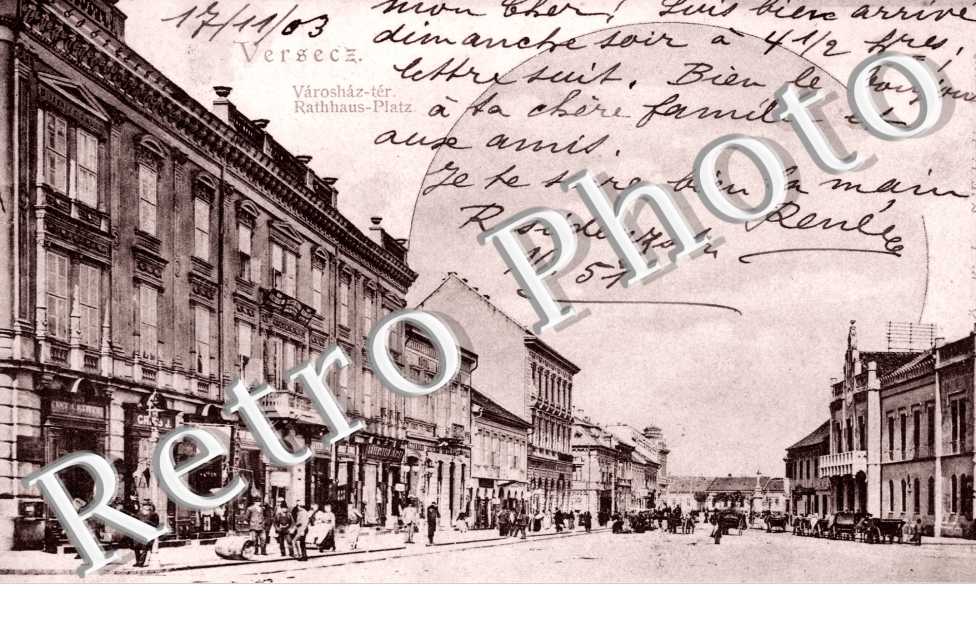 17/11/03
Versecz.
Városház-tér.
Rathhaus-Platz.
mon cher! Suis bien arrivé
dimanche soir à 4 1/2 hres,
lettre suit. Bien le
à ta chère famille et
aux amis.
Je te serre bien la main
René
51
Retro Photo